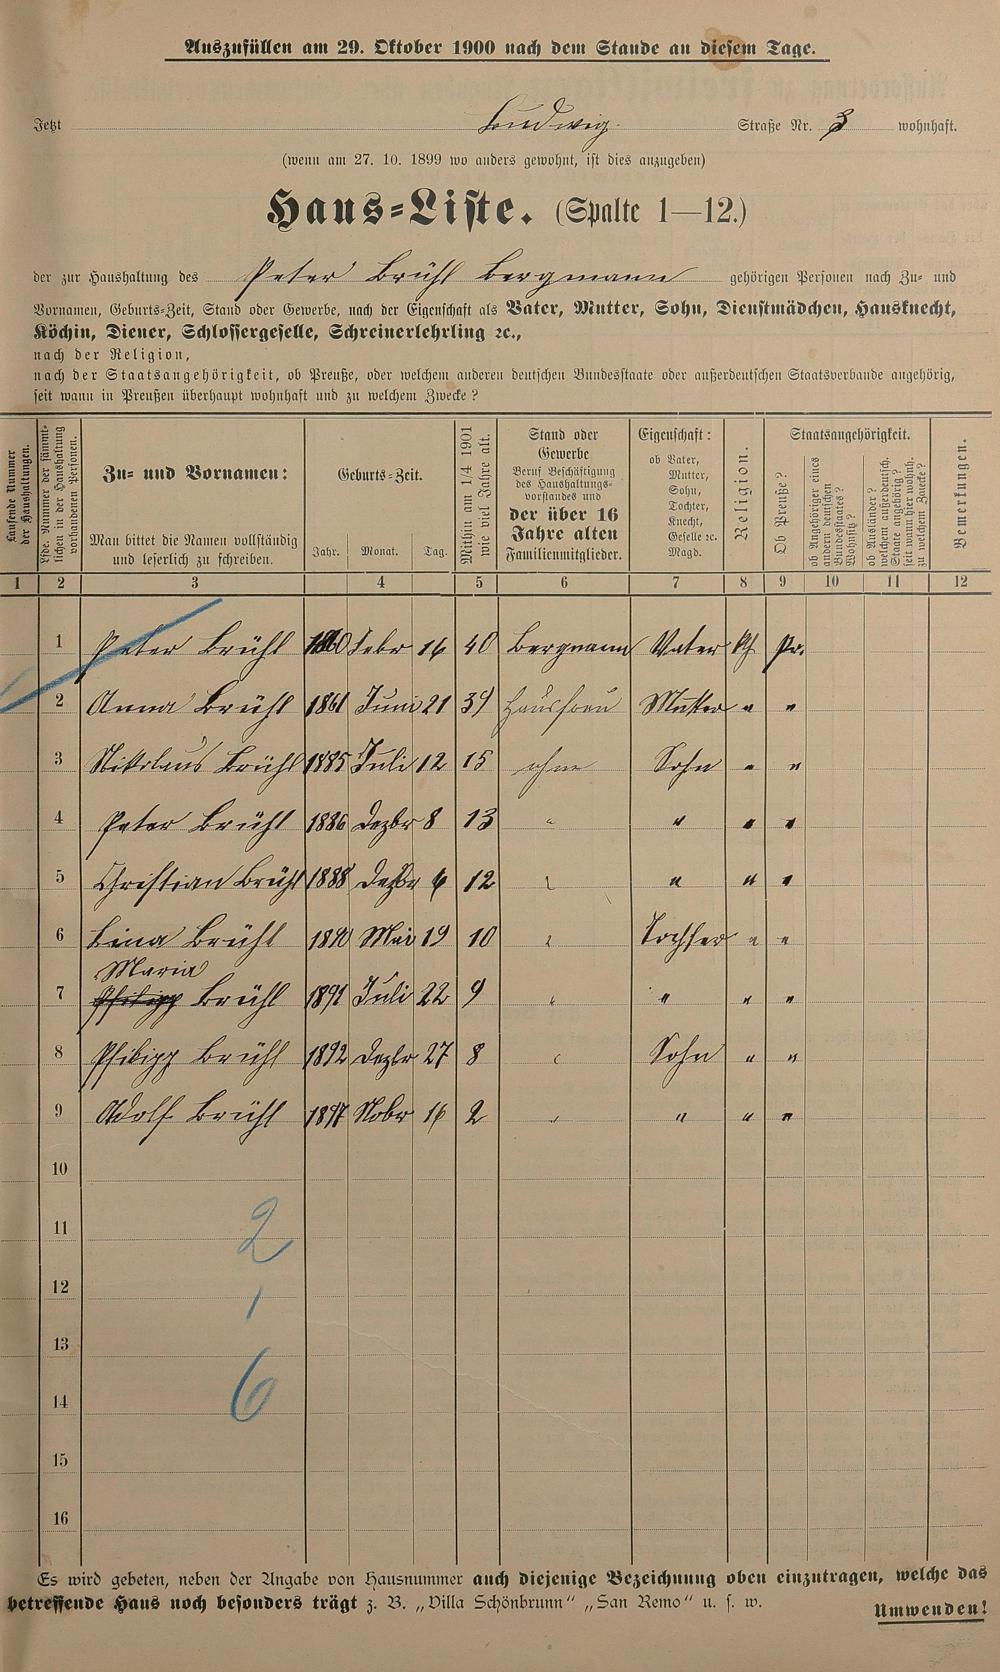 Auszufüllen am 29. Oktober 1900 nach dem Stande an diesem Tage.
Jetzt Ludwig Straße Nr. 3 wohnhaft.
(wenn am 27. 10. 1899 wo anders gewohnt, ist dies anzugeben)
Haus-Liste. (Spalte 1—12.)
der zur Haushaltung des Peter Brühl Bergmann gehörigen Personen nach Zu- und
Vornamen, Geburts-Zeit, Stand oder Gewerbe, nach der Eigenschaft als Vater, Mutter, Sohn, Dienstmädchen, Hausknecht,
Köchin, Diener, Schlossergeselle, Schreinerlehrling ꝛc.,
nach der Religion,
nach der Staatsangehörigkeit, ob Preuße, oder welchem anderen deutschen Bundesstaate oder außerdeutschen Staatsverbande angehörig,
seit wann in Preußen überhaupt wohnhaft und zu welchem Zwecke?
Laufende Nummer der Haushaltungen.
Lfde. Nummer der sämmtlichen in der Haushaltung vorhandenen Personen.
Zu- und Vornamen:
Man bittet die Namen vollständig
und leserlich zu schreiben.
Geburts-Zeit.
Jahr. Monat. Tag.
Mithin am 1/4 1901 wie viel Jahre alt.
Stand oder
Gewerbe
Beruf Beschäftigung
des Haushaltungs-
vorstandes und
der über 16
Jahre alten
Familienmitglieder.
Eigenschaft:
ob Vater,
Mutter,
Sohn,
Tochter,
Knecht,
Geselle ꝛc.
Magd.
Religion.
Staatsangehörigkeit.
Ob Preuße?
ob Angehöriger eines andern deutschen Bundesstaates? Wohnsitz?
ob Ausländer? welchem außerdeutsch. Staate angehörig? seit wann hier wohnh. zu welchem Zwecke?
Bemerkungen.
1 2 3 4 5 6 7 8 9 10 11 12
1 Peter Brühl 1860 Febr 16 40 Bergmann Vater kth Pr.
2 Anna Brühl 1861 Juni 21 39 Hausfrau Mutter " "
3 Nikolaus Brühl 1885 Juli 12 15 ohne Sohn " "
4 Peter Brühl 1886 Dezbr 8 13 " " " "
5 Christian Brühl 1888 Dezbr 6 12 " " " "
6 Lina Brühl 1890 Mai 19 10 " Tochter " "
Maria
7 Philipp Brühl 1891 Juli 22 9 " " " "
8 Philipp Brühl 1892 Dezbr 27 8 " Sohn " "
9 Adolf Brühl 1897 Nobr 16 2 " " " "
10
11 2
12 1
13
14 6
15
16
Es wird gebeten, neben der Angabe von Hausnummer auch diejenige Bezeichnung oben einzutragen, welche das
betreffende Haus noch besonders trägt z. B. „Villa Schönbrunn" „San Remo" u. s. w.
Umwenden!